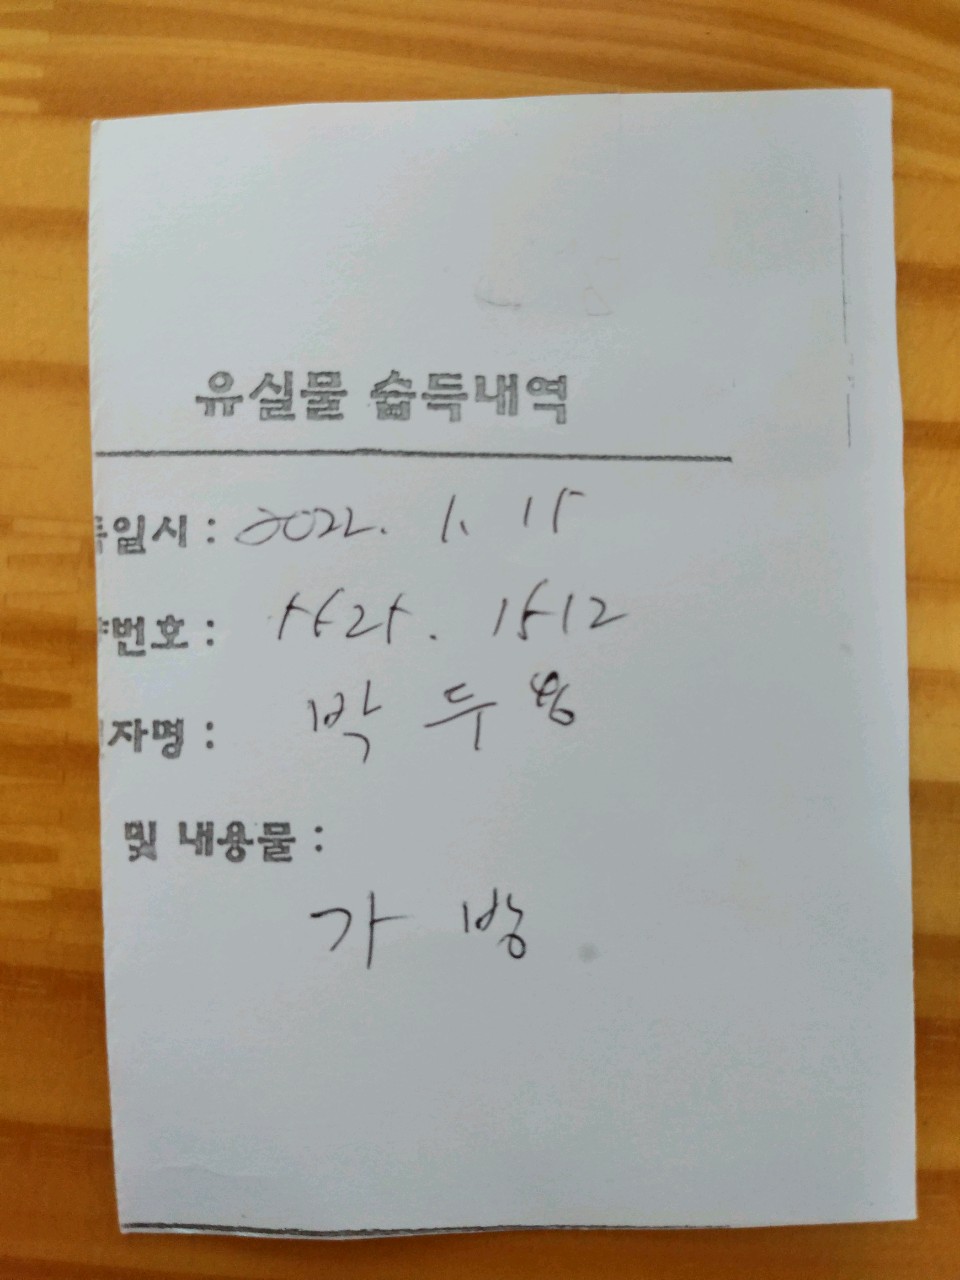 유실물 습득내역
득일시 : 2022. 1. 15
번호 : 5525. 1512
자명 : 박두
및 내용물 :
가방